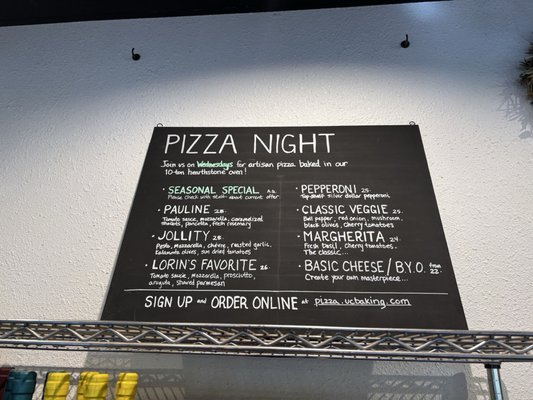 PIZZA NIGHT
Join us on Wednesdays for artisan pizza baked in our
10-ton hearthstone oven!
· SEASONAL SPECIAL n.a.
Please check with staff about current offer
· PAULINE 28.
Tomato sauce, mozzarella, caramelized
shallots, pancetta, fresh rosemary
· JOLLITY 28.
Pesto, mozzarella, chèvre, roasted garlic,
Kalamata olives, sun dried tomatoes
· LORIN'S FAVORITE 26.
Tomato sauce, mozzarella, prosciutto,
arugula, shaved parmesan
· PEPPERONI 25.
Top-shelf silver dollar pepperoni
· CLASSIC VEGGIE 25.
Bell pepper, red onion, mushroom,
black olives, cherry tomatoes
· MARGHERITA 24.
Fresh basil, cherry tomatoes...
The classic...
· BASIC CHEESE / B.Y.O. from 22.
Create your own masterpiece...
SIGN UP and ORDER ONLINE at pizza.ucbaking.com